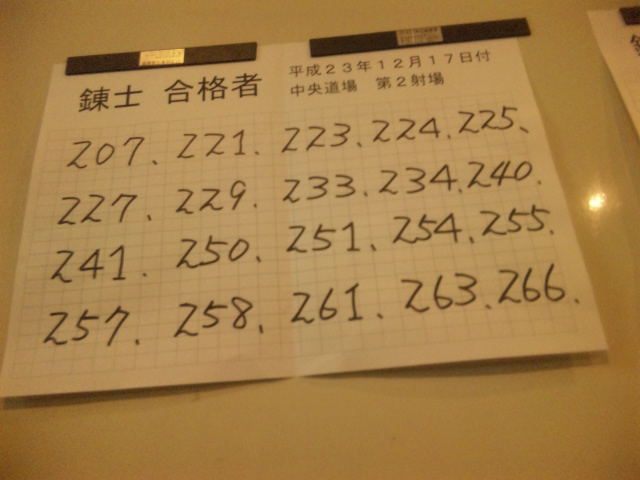 錬士 合格者 平成23年12月17日付
中央道場 第2射場
207、221、223、224、225、
227、229、233、234、240、
241、250、251、254、255、
257、258、261、263、266、